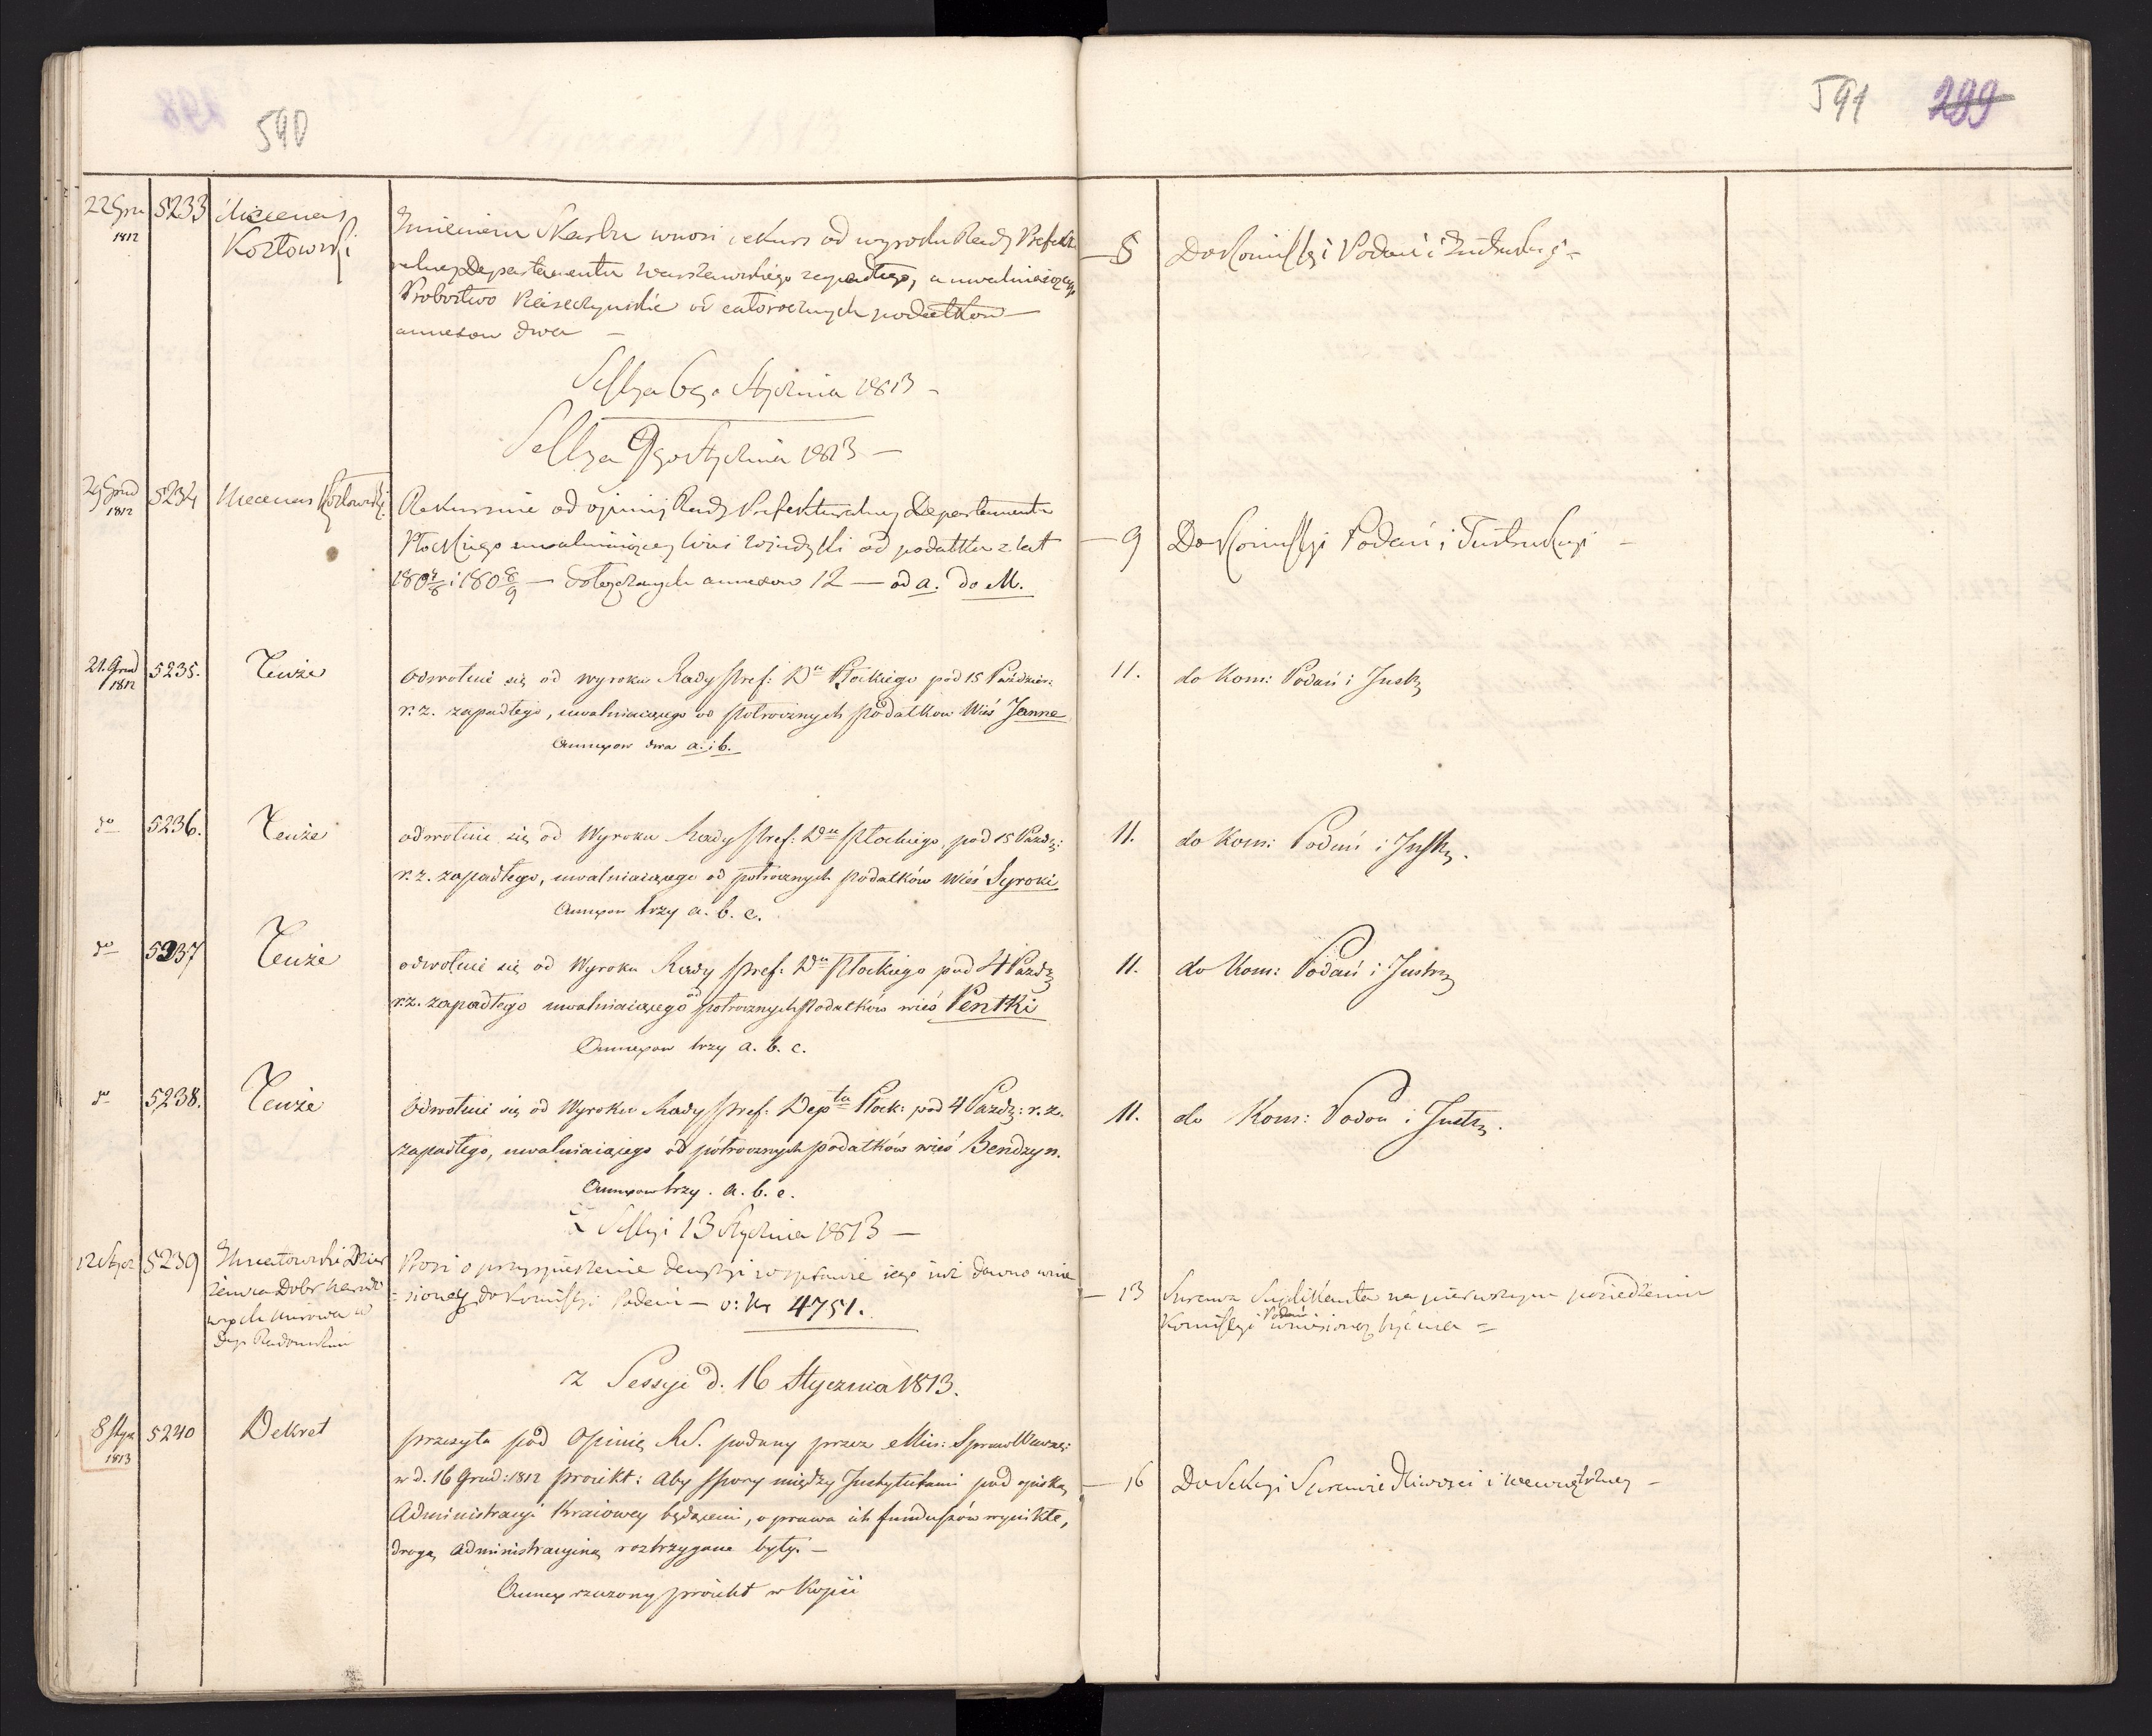 590
591 299
22 Gru 5233 Mecenas
1812 Kozłowski
Imieniem Skarbu wnosi rekurs od wyroku Rady Prefektu
ralney Departamentu Warszawskiego zapadłego, a uwalniaiącego
Probostwo Piaseczyńskie od całorocznych podatkow
annexow dwa —
— 8 Do Kommissyi Podań i Instrukcyi —
Sessya 6go Stycznia 1813 —
Sessya 9go Stycznia 1813 —
29 Grud 5234 Mecenas Kozłowski
1812
Rekursuie od opinij Rady Prefekturalney Departamentu
Płockiego uwalniaiącey Wieś od podatku z lat
180 7/8 i 180 8/9 — dołączonych annexow 12 — od a. do M.
— 9 Do Kommissyi Podań i Instrukcyi —
21. Grud 5235. Tenże
1812
odwołuie się od wyroku Rady Pref: Dtu Płockiego pod 15 Paździer:
r. z. zapadłego, uwalniaiącego od połrocznych podatkow Wieś Janne
Annexow dwa a. i b.
11. do Kom: Podań i Instr
do 5236. Tenże
odwołuie się od Wyroku Rady Pref: Dtu Płockiego, pod 15 Paźdz:
r. z. zapadłego, uwalniaiącego od połrocznych podatków Wieś Syroki
Annexow trzy a. b. c.
11. do Kom: Podań i Instr.
do 5237 Tenże
odwołuie się od Wyroku Rady Pref: Dtu Płockiego pod 4 Paźdz
r. z. zapadłego uwalniaiącego od połrocznych podatków wieś Pentki
Annexow trzy a. b. c.
11. do Kom: Podań i Instr
do 5238. Tenże
Odwołuie się od Wyroku Rady Pref: Depta Płock: pod 4 Paźdz: r. z.
zapadłego, uwalniaiącego od półrocznych podatków wieś Bendzyn.
Annexow trzy. a. b. c.
11. do Kom: Podań i Instr.
Z Sessyi 13 Stycznia 1813 —
12 Stycz 5239 Dzier
żawca Dobr Narodo
wych w
Dep Radomskim
Prosi o przyspieszenie decyzyi w sprawie iego iuż dawno wnie
= sioney do Komissyi Podań — v: Nr 4751.
— 13 Sprawa Suplikanta na pierwszym posiedzeniu
Komissyi Podań wniesioną być ma =
z Sessyi d. 16 Stycznia 1813.
8 Stycz 5240 Dekret
1813
przesyła pod Opinię R.S. podany przez Min: Spraw Wewnę:
w d. 16 Grud: 1812 proiekt: aby spory między Instytutami pod opieką
Administracyi Kraiowey będącemi, o prawa ich funduszów wynikłe,
drogą administracyiną roztrzygane były. —
Annex rzeczony proiekt w Kopii
— 16 Do Sekcyi Sprawiedliwości i Wewnętrzney —